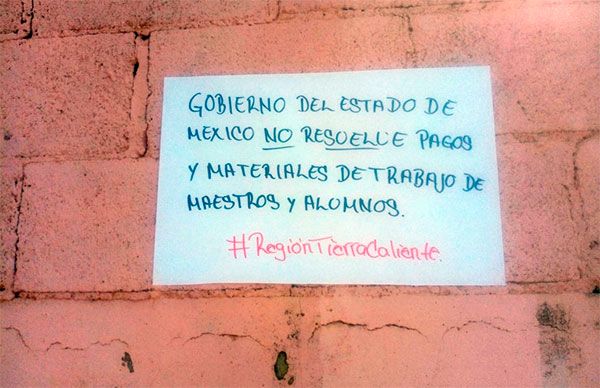 GOBIERNO DEL ESTADO DE
MEXICO NO RESUELVE PAGOS
Y MATERIALES DE TRABAJO DE
MAESTROS Y ALUMNOS.
#RegiónTierraCaliente.